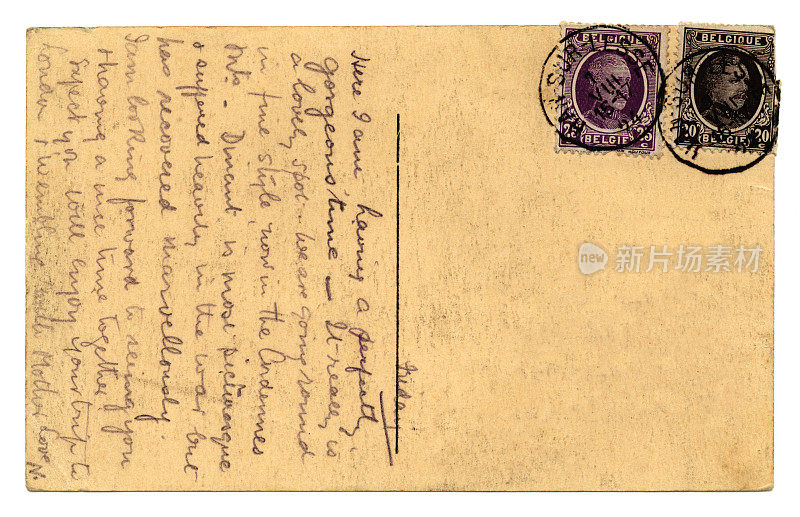 Friday
Here I am having a perfectly
gorgeous time – It really is
a lovely spot – we are going round
in fine style, now in the Ardennes
Mts – Dinant is most picturesque
& suffered heavily in the war but
has recovered marvellously.
I am looking forward to seeing you
& having a nice time together
Expect you will enjoy your trip to
London & Wembley with Mother Love N.
BELGIQUE
25 25
BELGIË
BELGIQUE
20 20
BELGIË
SUR-LESSE
VIII
new 新片场素材